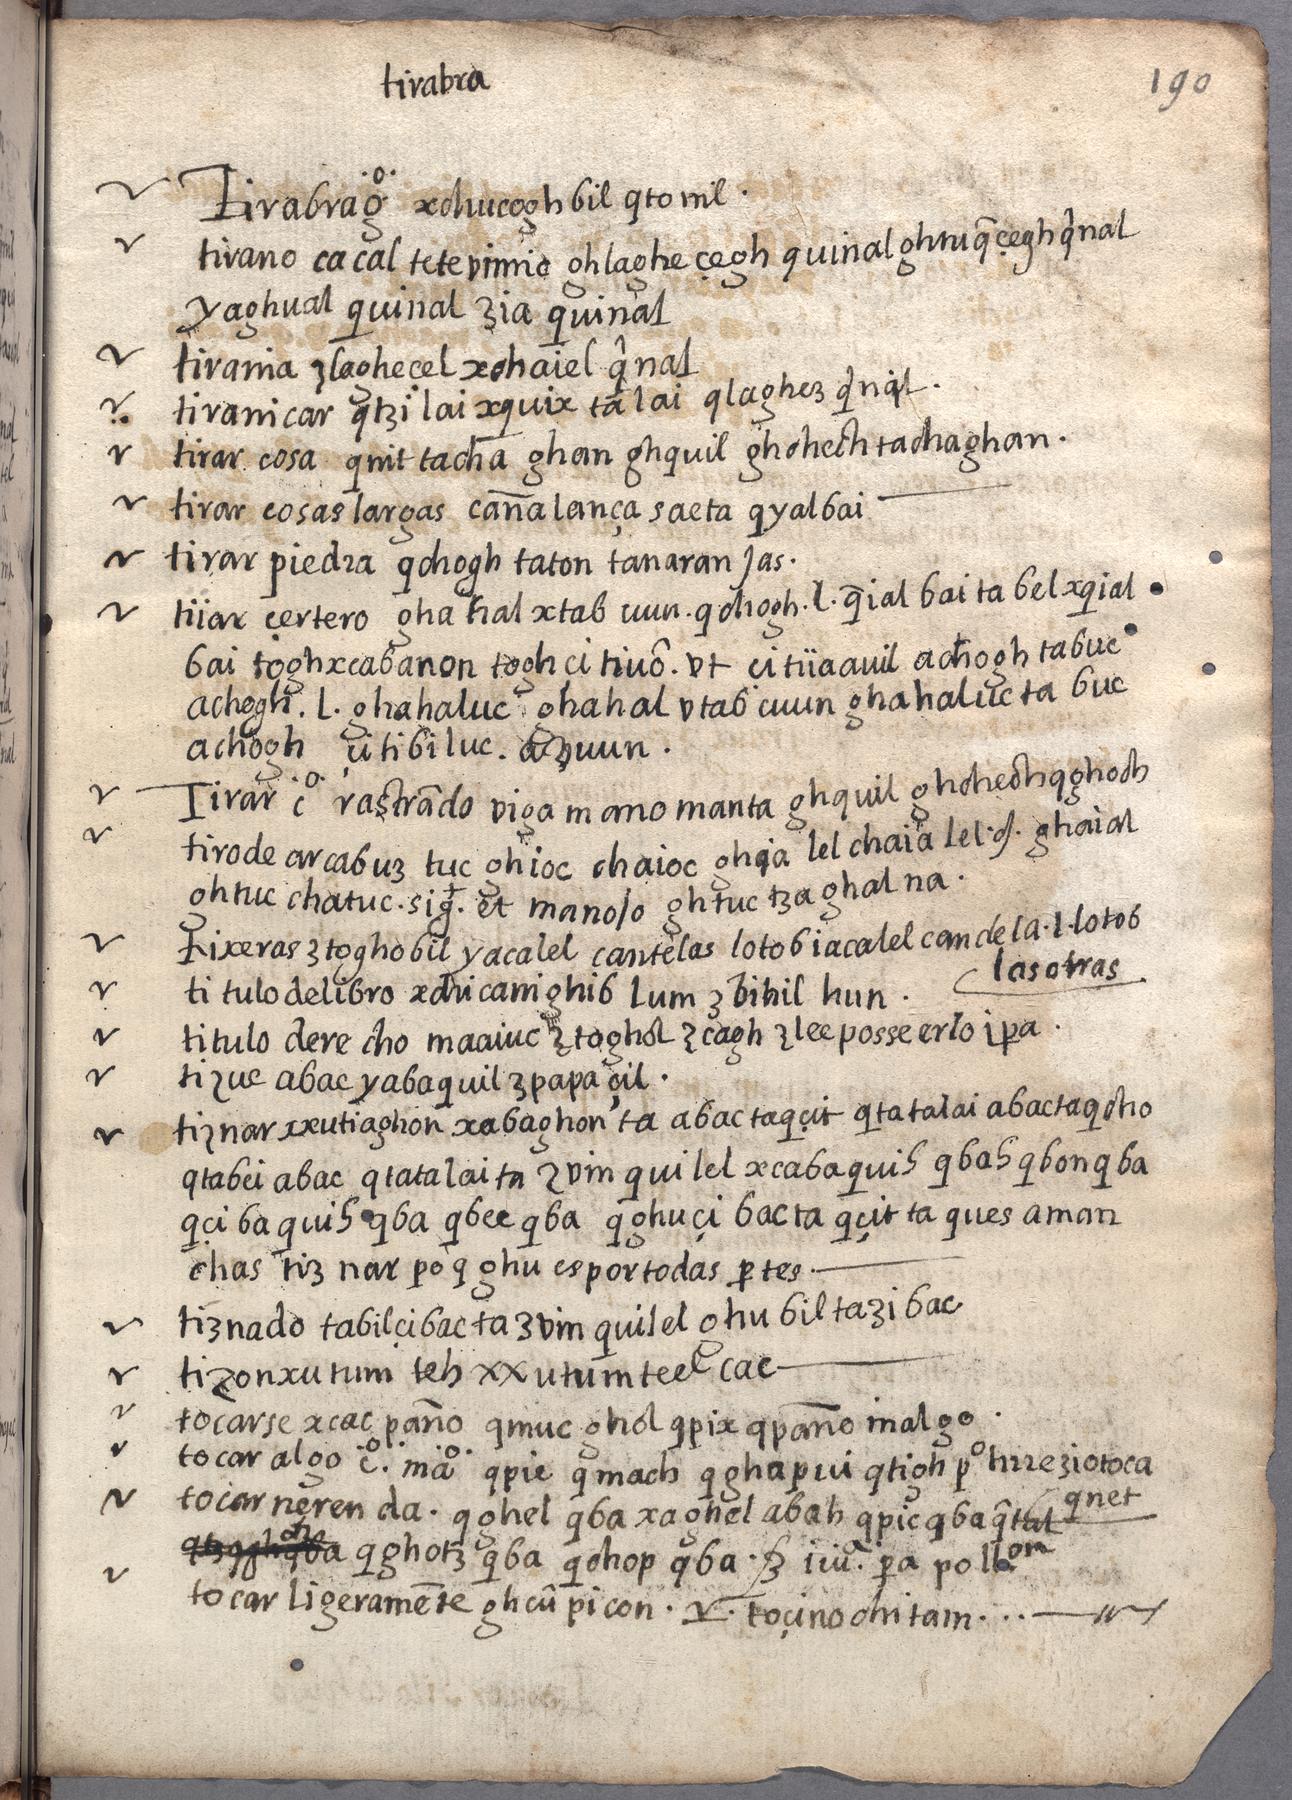 tirabra
190
Tirabrag̃o xchucogh bil qtomil.
tirano cacal tetevinnic ghlaghe çegh quinal ghtuq̃ çegh q̂nal
yaghual quinal ʒia quinal
tirania ʒlaghecel xchaiel q̂nal
tiranicar qtʒi lai xquix ta lai qlagheʒ q̂nal.
tirar cosa qnit tacha ghan ghquil ghchech tachaghan.
tirar cosas largas cañalança saeta qyalbai
tirar piedra qchogh taton tanaranjas.
tirar çertero gha hal xtab uun. qchogh. l. q̃ial bai ta bel xqial
bai toghxcabanon togh ci tiuô. vt ci tiiaauil achogh tabuc
achogh. l. ghahaluc ghahal vtab cuun ghahaluc ta buc
achogh çitibiluc. aʒuun.
Tirar c̊ rastrãdo viga mano manta ghquil ghchechqghoch
tirode arcabuʒ tuc ghioc chaioc ghqia lel chaia lel. ghaial
ghtuc chatuc. sig̃. et manojo ghtuc tʒaghal na.
Tixeras ʒtoghobil yacalel cantelas lotobiacalel candela. l. lotob
las otras
titulo delibro xchicanighib lum ʒbihil hun.
titulo derecho maaiuc ʒtoghol ʒcagh ʒlee posseerlo ip̱a.
tiʒue abac yabaquil ʒpapaçil.
tiʒnar xxutiaghon xabaghon ta abac taqçit qtatalai abactaqcho
qtabei abac qtatalaita ʒvin quilel xcabaquih qbah qbonqba
qçi baquih qba qbee qba qghuçi bacta qçit ta ques aman
chas tiʒnar poq̱ ghu es portodas p̱tes.
tiʒnado tabilçibac ta ʒvin quilel ghubil taʒibac
tiʒonxutum teh xxutumteel cac
tocarse xcac paño qmuc ghol qpix qpaño inalgo.
tocar algo c̊. mã̊ qpie qmach qghapui qtigh p̊ hrreʒiotoca
tocarneren da. qghel qba xaghel abah qpic qba q̂tal qnet
qba qghotʒ qba qchop qba. iiũ. p̱a pollon
tocar ligeramẽte ghcũ picon. V. toçino chitam....